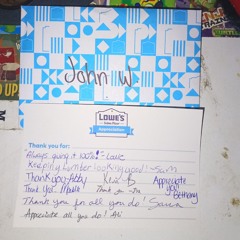 John W
LOWE'S
Appreciation
Thank you for:
Always giving it 100%! - Love
Keeping lumber looking good! - Sam
Thank you - Abby
Appreciate
Thank You!
Thank you - JM
you!
Bethany
Thank you for all you do! Sara
Appreciate all you do! Ali